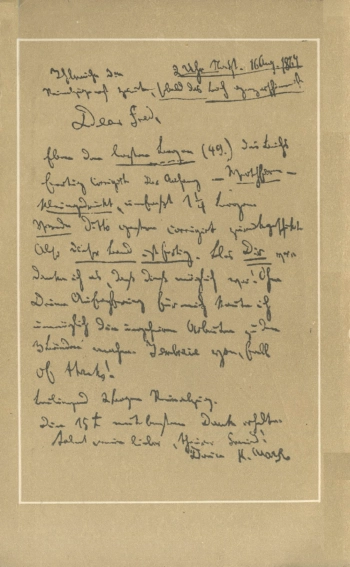 2 Uhr Nacht. 16 Aug. 1867
Dear Fred,
Eben den letzten Bogen (49.) des Buchs
fertig corrigirt. Der Anhang – Werthform –
kleingedruckt, umfaßt 1 1/4 Bogen.
Vorrede ditto gestern corrigirt zurückgeschickt.
Also dieser Band ist fertig. Blos Dir ver-
danke ich es, daß dieß möglich war! Ohne
Deine Aufopferung für mich konnte ich
unmöglich die ungeheuren Arbeiten zu den
3 Bänden machen. I embrace you, full
of thanks!
Beiliegend 2 Bogen Reinabzug.
Die 15 £ mit bestem Dank erhalten.
Salut, mein lieber, theurer Freund!
Dein K. Marx